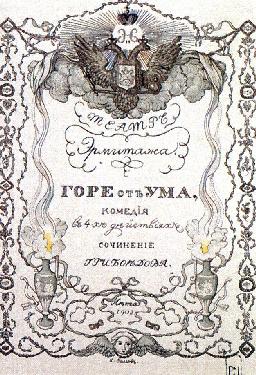 Э.С.
ТЕАТРЪ
Эрмитажа.
ГОРЕ отъ УМА,
КОМЕДIЯ
въ 4хъ дѣйствiяхъ
СОЧИНЕНIЕ
ГРИБОѢДОВА.